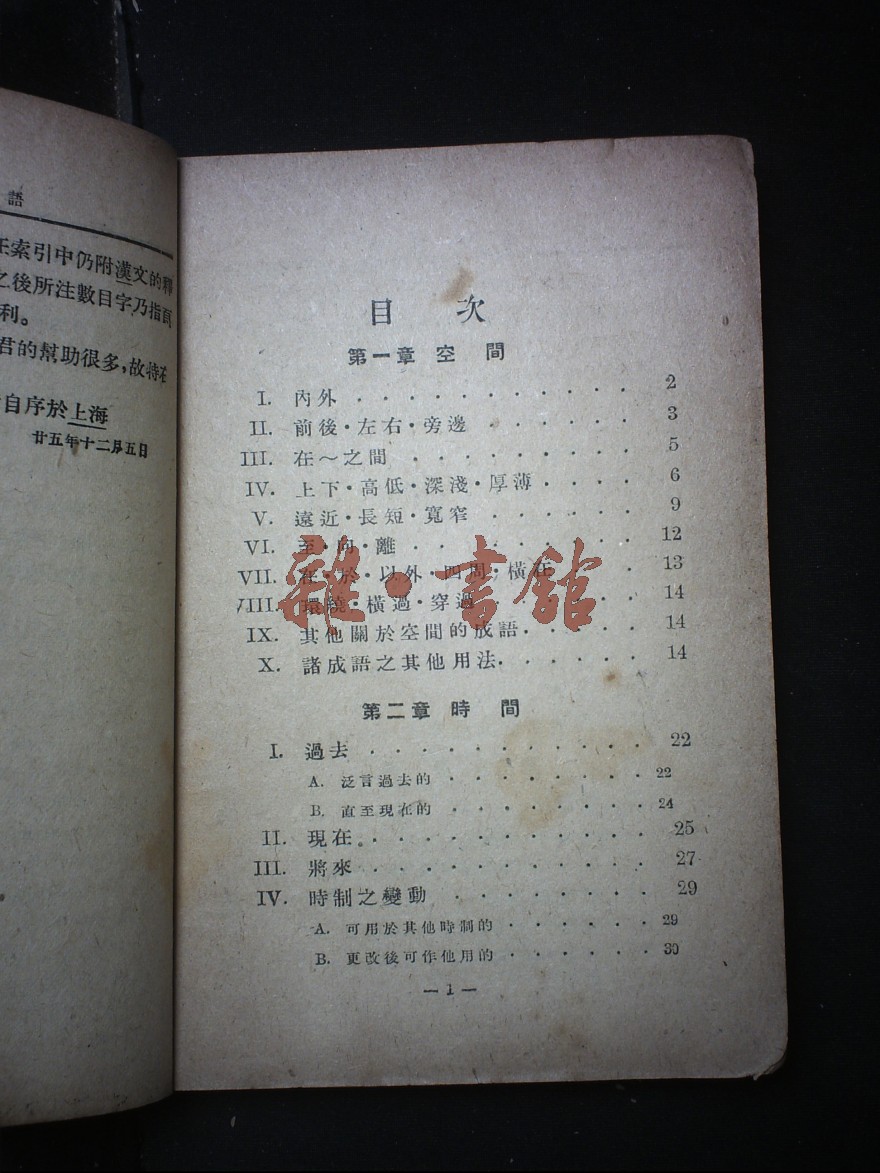 語
索引中仍附漢文的釋
之後所注數目字乃指頁
利。
君的幫助很多,故特在
自序於上海
廿五年十二月五日
目 次
第一章 空 間
I. 內外 2
II. 前後·左右·旁邊 3
III. 在~之間 5
IV. 上下·高低·深淺·厚薄 6
V. 遠近·長短·寬窄 9
VI. 至·向·離 12
VII. 在·於·以外·四周·橫在 13
VIII. 環繞·橫過·穿過 14
雜·書館
IX. 其他關於空間的成語 14
X. 諸成語之其他用法 14
第二章 時 間
I. 過去 22
A. 泛言過去的 22
B. 直至現在的 24
II. 現在 25
III. 將來 27
IV. 時制之變動 29
A. 可用於其他時制的 29
B. 更改後可作他用的 30
— 1 —